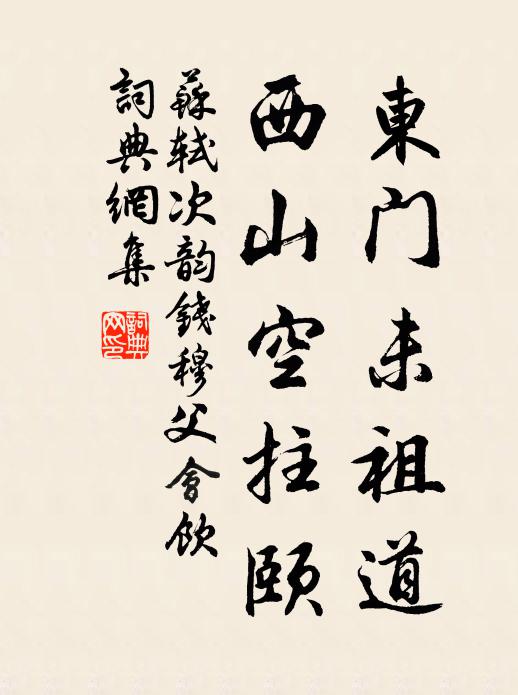 東門未祖道
西山空拄頤
蘇軾次韵錢穆父會飲
詞典網集
詞典網印